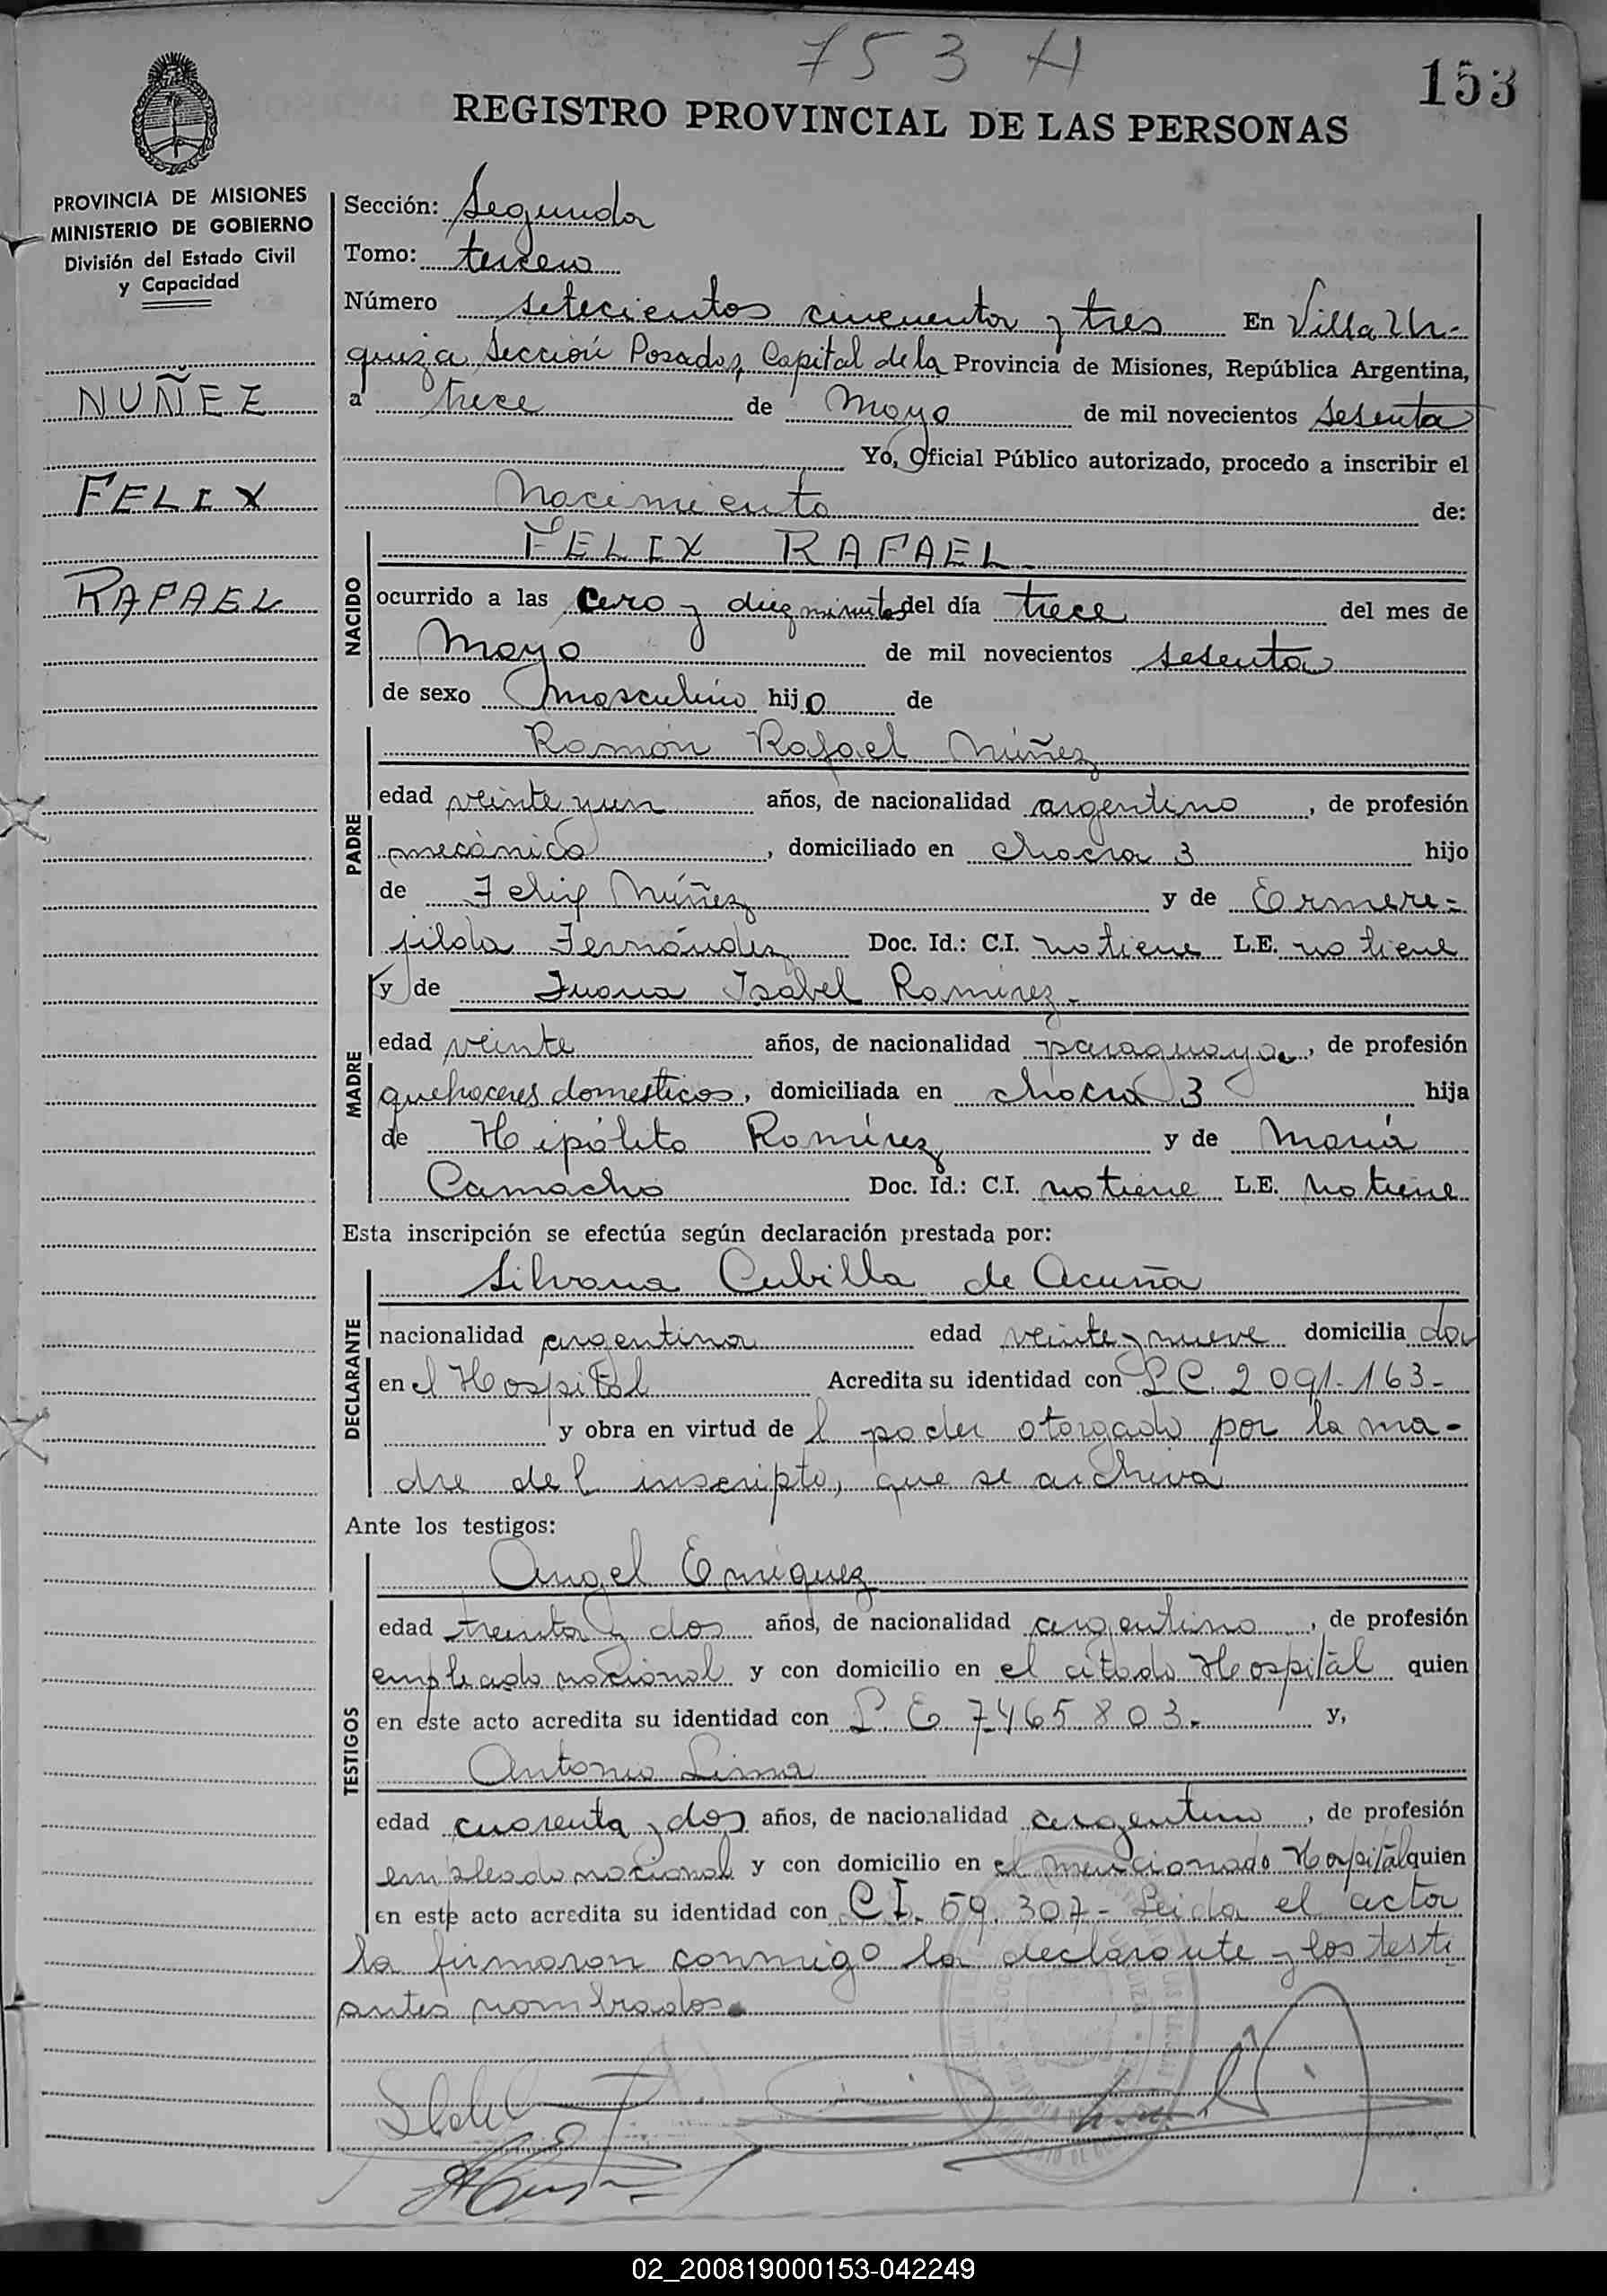 753 H
153
REGISTRO PROVINCIAL DE LAS PERSONAS
PROVINCIA DE MISIONES
MINISTERIO DE GOBIERNO
División del Estado Civil
y Capacidad
NUÑEZ
FELIX
RAFAEL
Sección: Segunda
Tomo: tercero
Número setecientos cincuenta y tres En Villa Ur-
quiza Sección Posadas, Capital de la Provincia de Misiones, República Argentina,
a trece de Mayo de mil novecientos sesenta
Yo, Oficial Público autorizado, procedo a inscribir el
Nacimiento de:
NACIDO
FELIX RAFAEL.
ocurrido a las cero y diez minutos del día trece del mes de
Mayo de mil novecientos sesenta
de sexo masculino hijo de
PADRE
Ramón Rafael Núñez
edad veinte y un años, de nacionalidad argentino, de profesión
mecánico, domiciliado en chacra 3 hijo
de Felix Núñez y de Ermere-
jilda Fernández Doc. Id.: C.I. no tiene L.E. no tiene
MADRE
y de Juana Isabel Ramírez-
edad veinte años, de nacionalidad paraguaya, de profesión
quehaceres domesticos, domiciliada en chacra 3 hija
de Hipólito Ramírez y de María
Camacho Doc. Id.: C.I. no tiene L.E. no tiene
Esta inscripción se efectúa según declaración prestada por:
DECLARANTE
Silvana Cubilla de Acuña
nacionalidad argentina edad veinte y nueve domicilia da
en el Hospital Acredita su identidad con L.C. 2091.163-
y obra en virtud de l poder otorgado por la ma-
dre del inscripto, que se archiva
Ante los testigos:
TESTIGOS
Angel Enriquez
edad treinta y dos años, de nacionalidad argentino, de profesión
empleado nacional y con domicilio en el citado Hospital quien
en este acto acredita su identidad con L.E. 7465803.- y,
Antonio Lima
edad cuarenta y dos años, de nacionalidad argentino, de profesión
empleado nacional y con domicilio en el mencionado Hospital quien
en este acto acredita su identidad con C.I. 59.307- Leida el acta
la firmaron conmigo la declarante y los testi
antes nombrados.
02_200819000153-042249